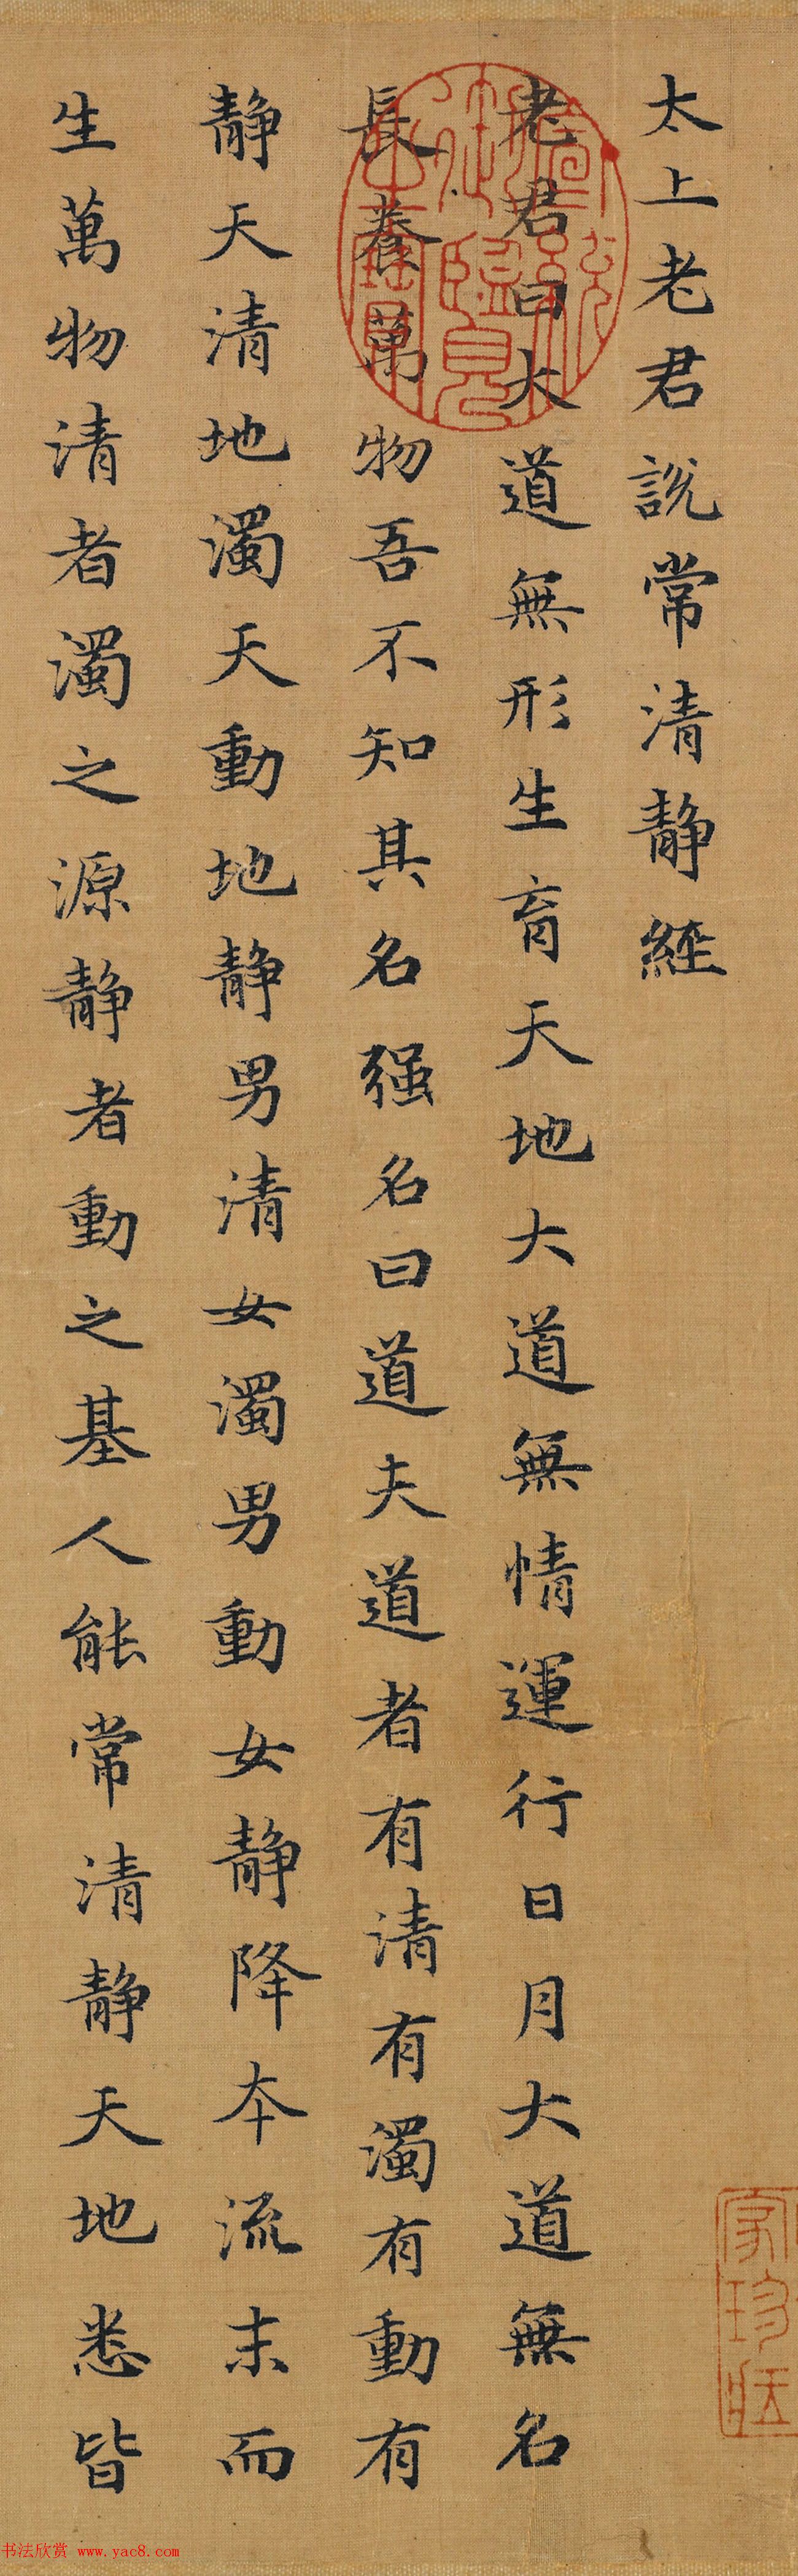 太上老君説常清靜經
老君曰大道無形生育天地大道無情運行日月大道無名
長養萬物吾不知其名强名曰道夫道者有清有濁有動有
靜天清地濁天動地靜男清女濁男動女靜降本流末而
生萬物清者濁之源靜者動之基人能常清靜天地悉皆
宣統御覽之寶
书法欣赏 www.yac8.com